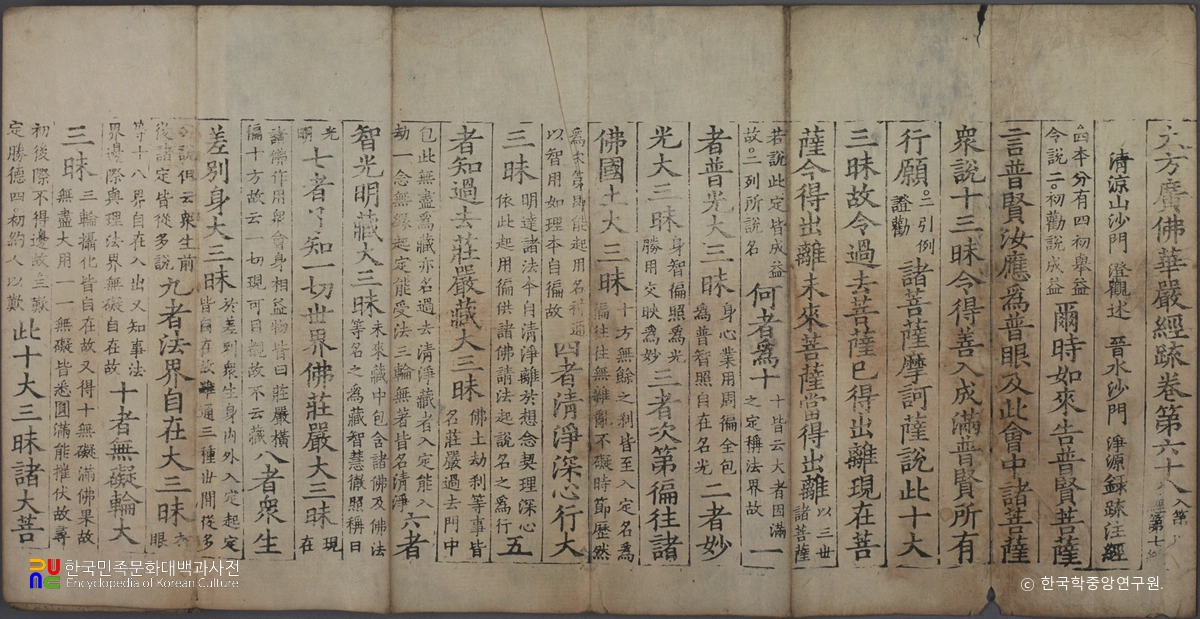 大方廣佛華嚴經䟽卷第六十八 入第 經第七
清涼山沙門 澄觀述 晉水沙門 淨源錄䟽注經
四本分有四初舉益今說二初勸說成益 爾時如來告普賢菩薩
言普賢汝應爲普眼及此會中諸菩薩
衆說十三昧令得善入成滿普賢所有
行願 二引例證勸 諸菩薩摩訶薩說此十大
三昧故令過去菩薩已得出離現在菩
薩今得出離未來菩薩當得出離 以三世諸菩薩
若說此定皆成益故二列所說名 何者爲十 十皆云大者因滿之定稱法界故 一
者普光大三昧 身心業用周徧全包爲普智照自在名光 二者妙
光大三昧 身智徧照爲光勝用交映爲妙 三者次第徧往諸
佛國土大三昧 十方無餘之刹皆至入定名爲徧往往無雜亂不礙時節歷然
爲次第能起用名神通以智用如理本自徧故 四者清淨深心行大
三昧 明達諸法本自清淨離於想念契理深心依此起用徧供諸佛請法起說名之爲行 五
者知過去莊嚴藏大三昧 佛土劫刹等事皆名莊嚴過去門中
包此無盡爲藏亦名過去清淨藏者入定能入劫一念無緣起定能受法三輪無著皆名清淨 六者
智光明藏大三昧 未來藏中包含諸佛及佛法等名之爲藏智慧徹照稱曰
光明 七者了知一切世界佛莊嚴大三昧 現在
諸佛作用衆會身相益物皆曰莊嚴橫徧十方故云一切現可目覩故不云藏 八者衆生
差別身大三昧 於差別衆生身內外入定起定皆自在故雖通三種世間從多
說但云衆生前後諸定皆從多說 九者法界自在大三昧 眼
等十八界自在入出又知事法界邊際與理法界無礙自在故 十者無礙輪大
三昧 三輪攝化皆自在故又得十無礙滿佛果故無盡大用一一無礙皆悉圓滿能摧伏故尋
初後際不得邊故三歎定勝德四初約人以歎 此十大三昧諸大菩
한국민족문화대백과사전
Encyclopedia of Korean Culture
ⓒ 한국학중앙연구원.